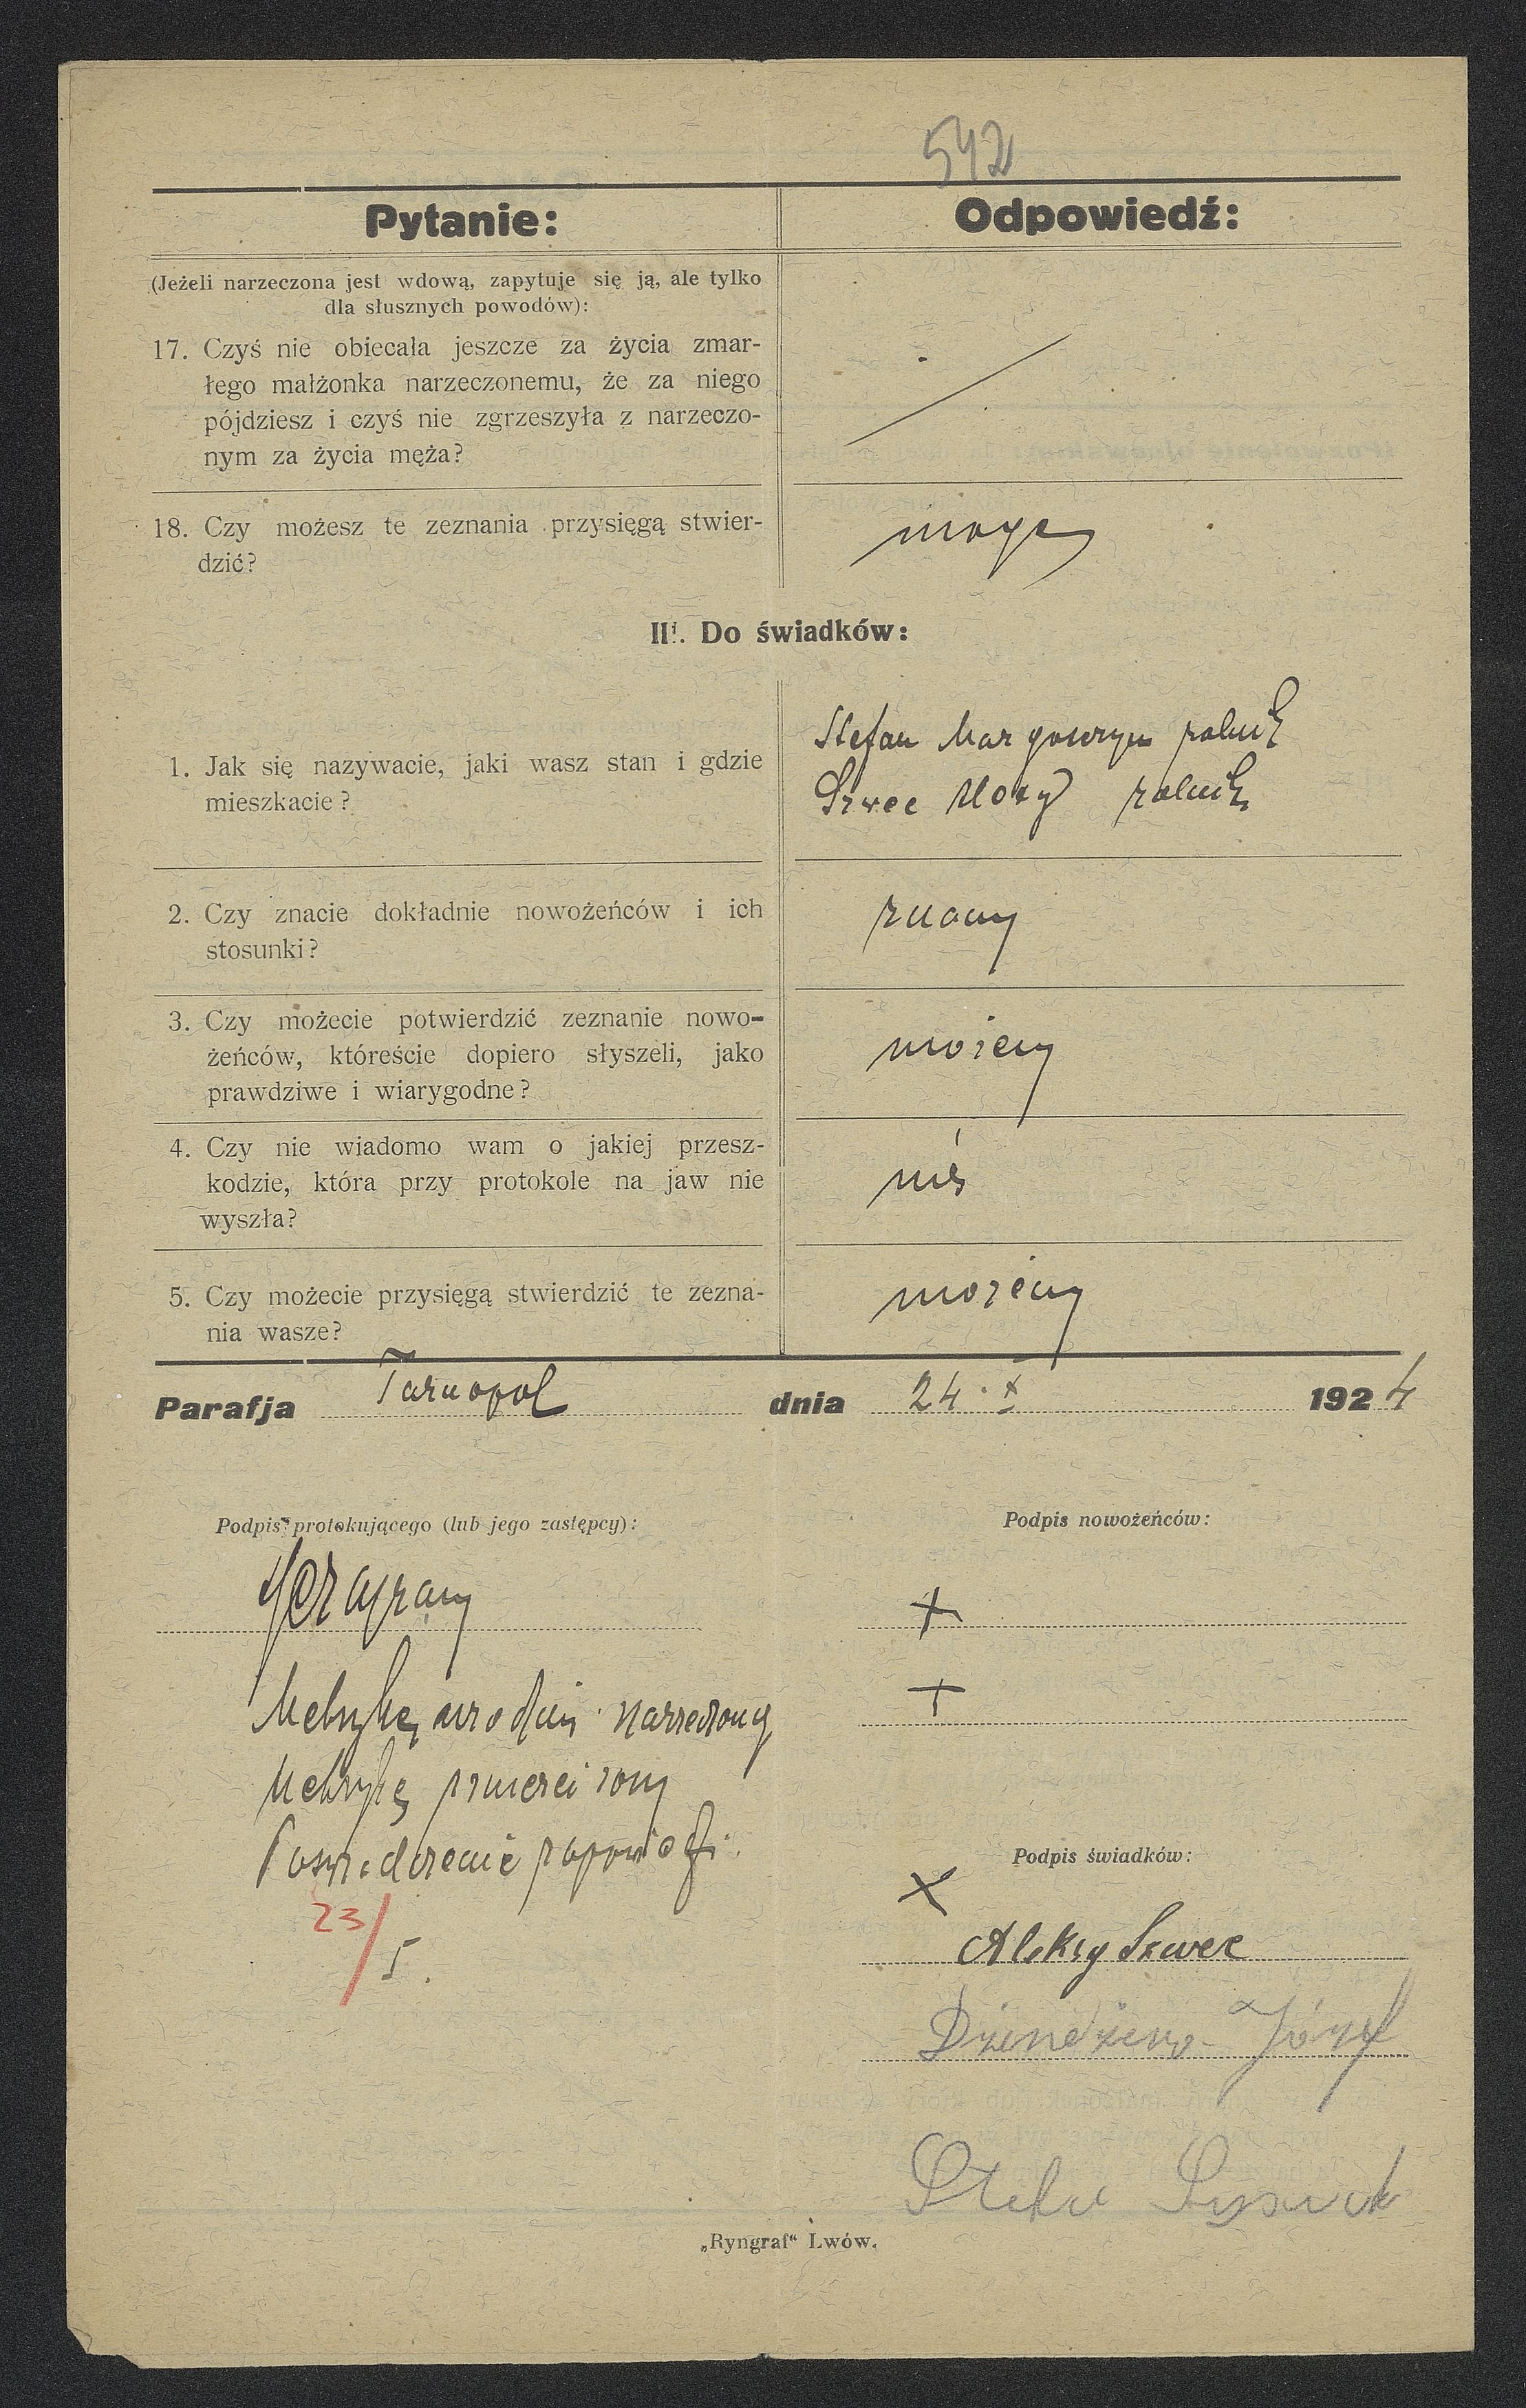 542
Pytanie:
Odpowiedź:
(Jeżeli narzeczona jest wdową, zapytuje się ją, ale tylko
dla słusznych powodów):
17. Czyś nie obiecała jeszcze za życia zmar-
łego małżonka narzeczonemu, że za niego
pójdziesz i czyś nie zgrzeszyła z narzeczo-
nym za życia męża?
18. Czy możesz te zeznania przysięgą stwier-
dzić?
mogę
III. Do świadków:
1. Jak się nazywacie, jaki wasz stan i gdzie
mieszkacie?
Stefan rolnik
Szwec rolnik
2. Czy znacie dokładnie nowożeńców i ich
stosunki?
znamy
3. Czy możecie potwierdzić zeznanie nowo-
żeńców, któreście dopiero słyszeli, jako
prawdziwe i wiarygodne?
możemy
4. Czy nie wiadomo wam o jakiej przesz-
kodzie, która przy protokole na jaw nie
wyszła?
nie
5. Czy możecie przysięgą stwierdzić te zezna-
nia wasze?
możemy
Parafja Tarnopol dnia 24. X 1924
Podpis protokującego (lub jego zastępcy):
Podpis nowożeńców:
+
+
Metrykę urodzin narzeczonej
Metrykę śmierci żony
Poświadczenie zapowiedzi
23/5.
Podpis świadków:
x
Aleksy Szwec
Józef
„Ryngraf“ Lwów.